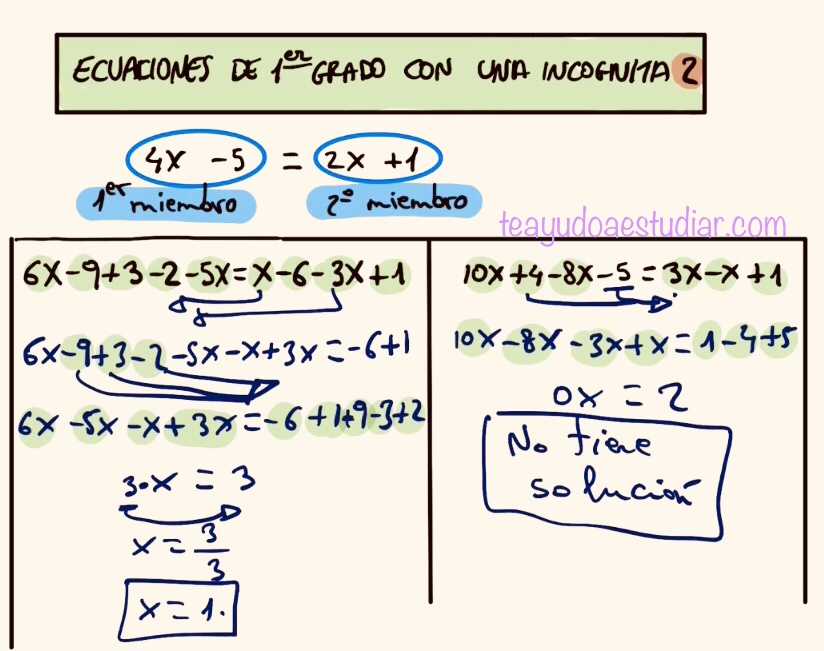 ECUACIONES DE 1er GRADO CON UNA INCOGNITA 2
4x - 5 = 2x + 1
1er miembro 2º miembro
teayudoaestudiar.com
6x-9+3-2-5x=x-6-3x+1
6x-9+3-2-5x-x+3x=-6+1
6x-5x-x+3x=-6+1+9-3+2
3·x = 3
x = 3/3
x = 1.
10x+4-8x-5=3x-x+1
10x-8x-3x+x=1-4+5
0x = 2
No tiene
solución